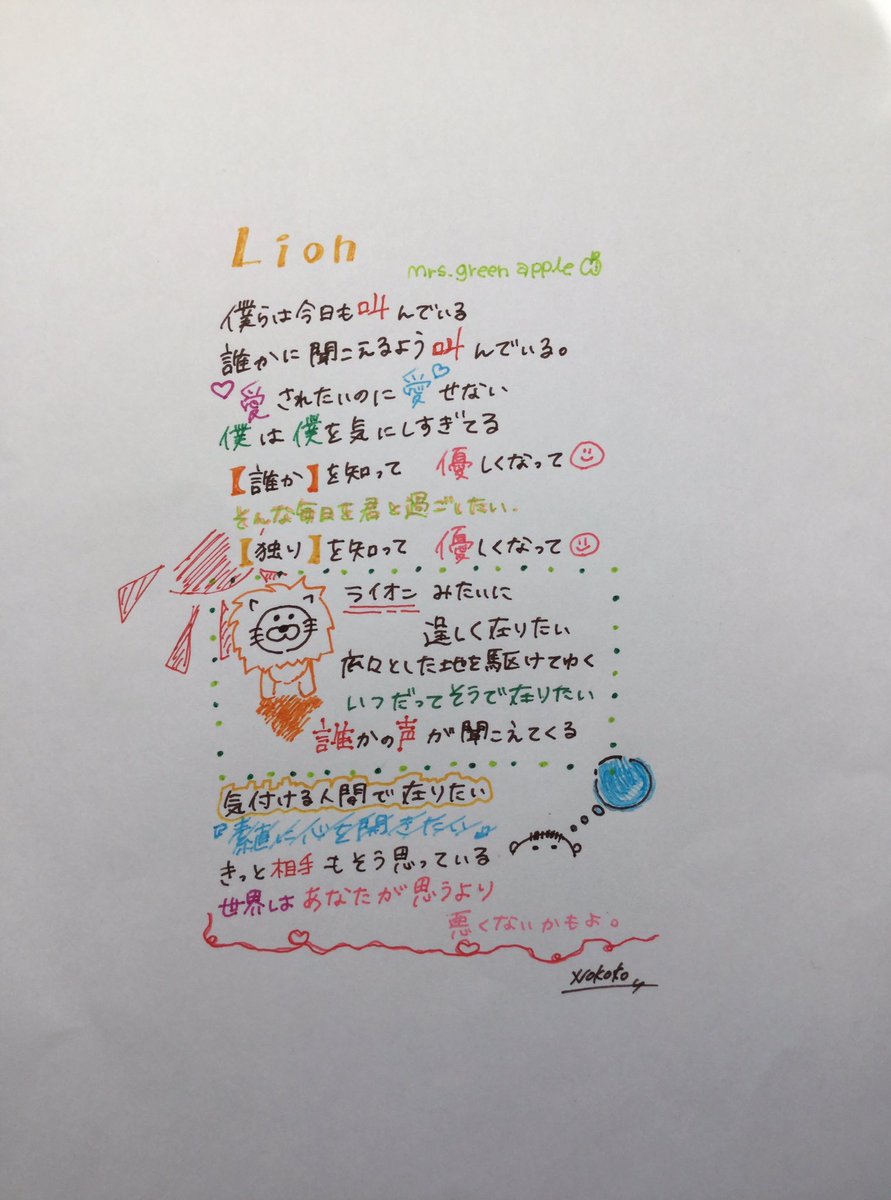 Lion
mrs. green apple
僕らは今日も叫んでいる
誰かに聞こえるよう叫んでいる。
愛されたいのに愛せない
僕は僕を気にしすぎてる
【誰か】を知って 優しくなって
そんな毎日を君と過ごしたい.
【独り】を知って 優しくなって
ライオンみたいに
逞しく在りたい
広々とした地を駆けてゆく
いつだってそうで在りたい
誰かの声が聞こえてくる
気付ける人間で在りたい
『素直に心を開きなさい』
きっと相手もそう思っている
世界はあなたが思うより
悪くないかもよ。